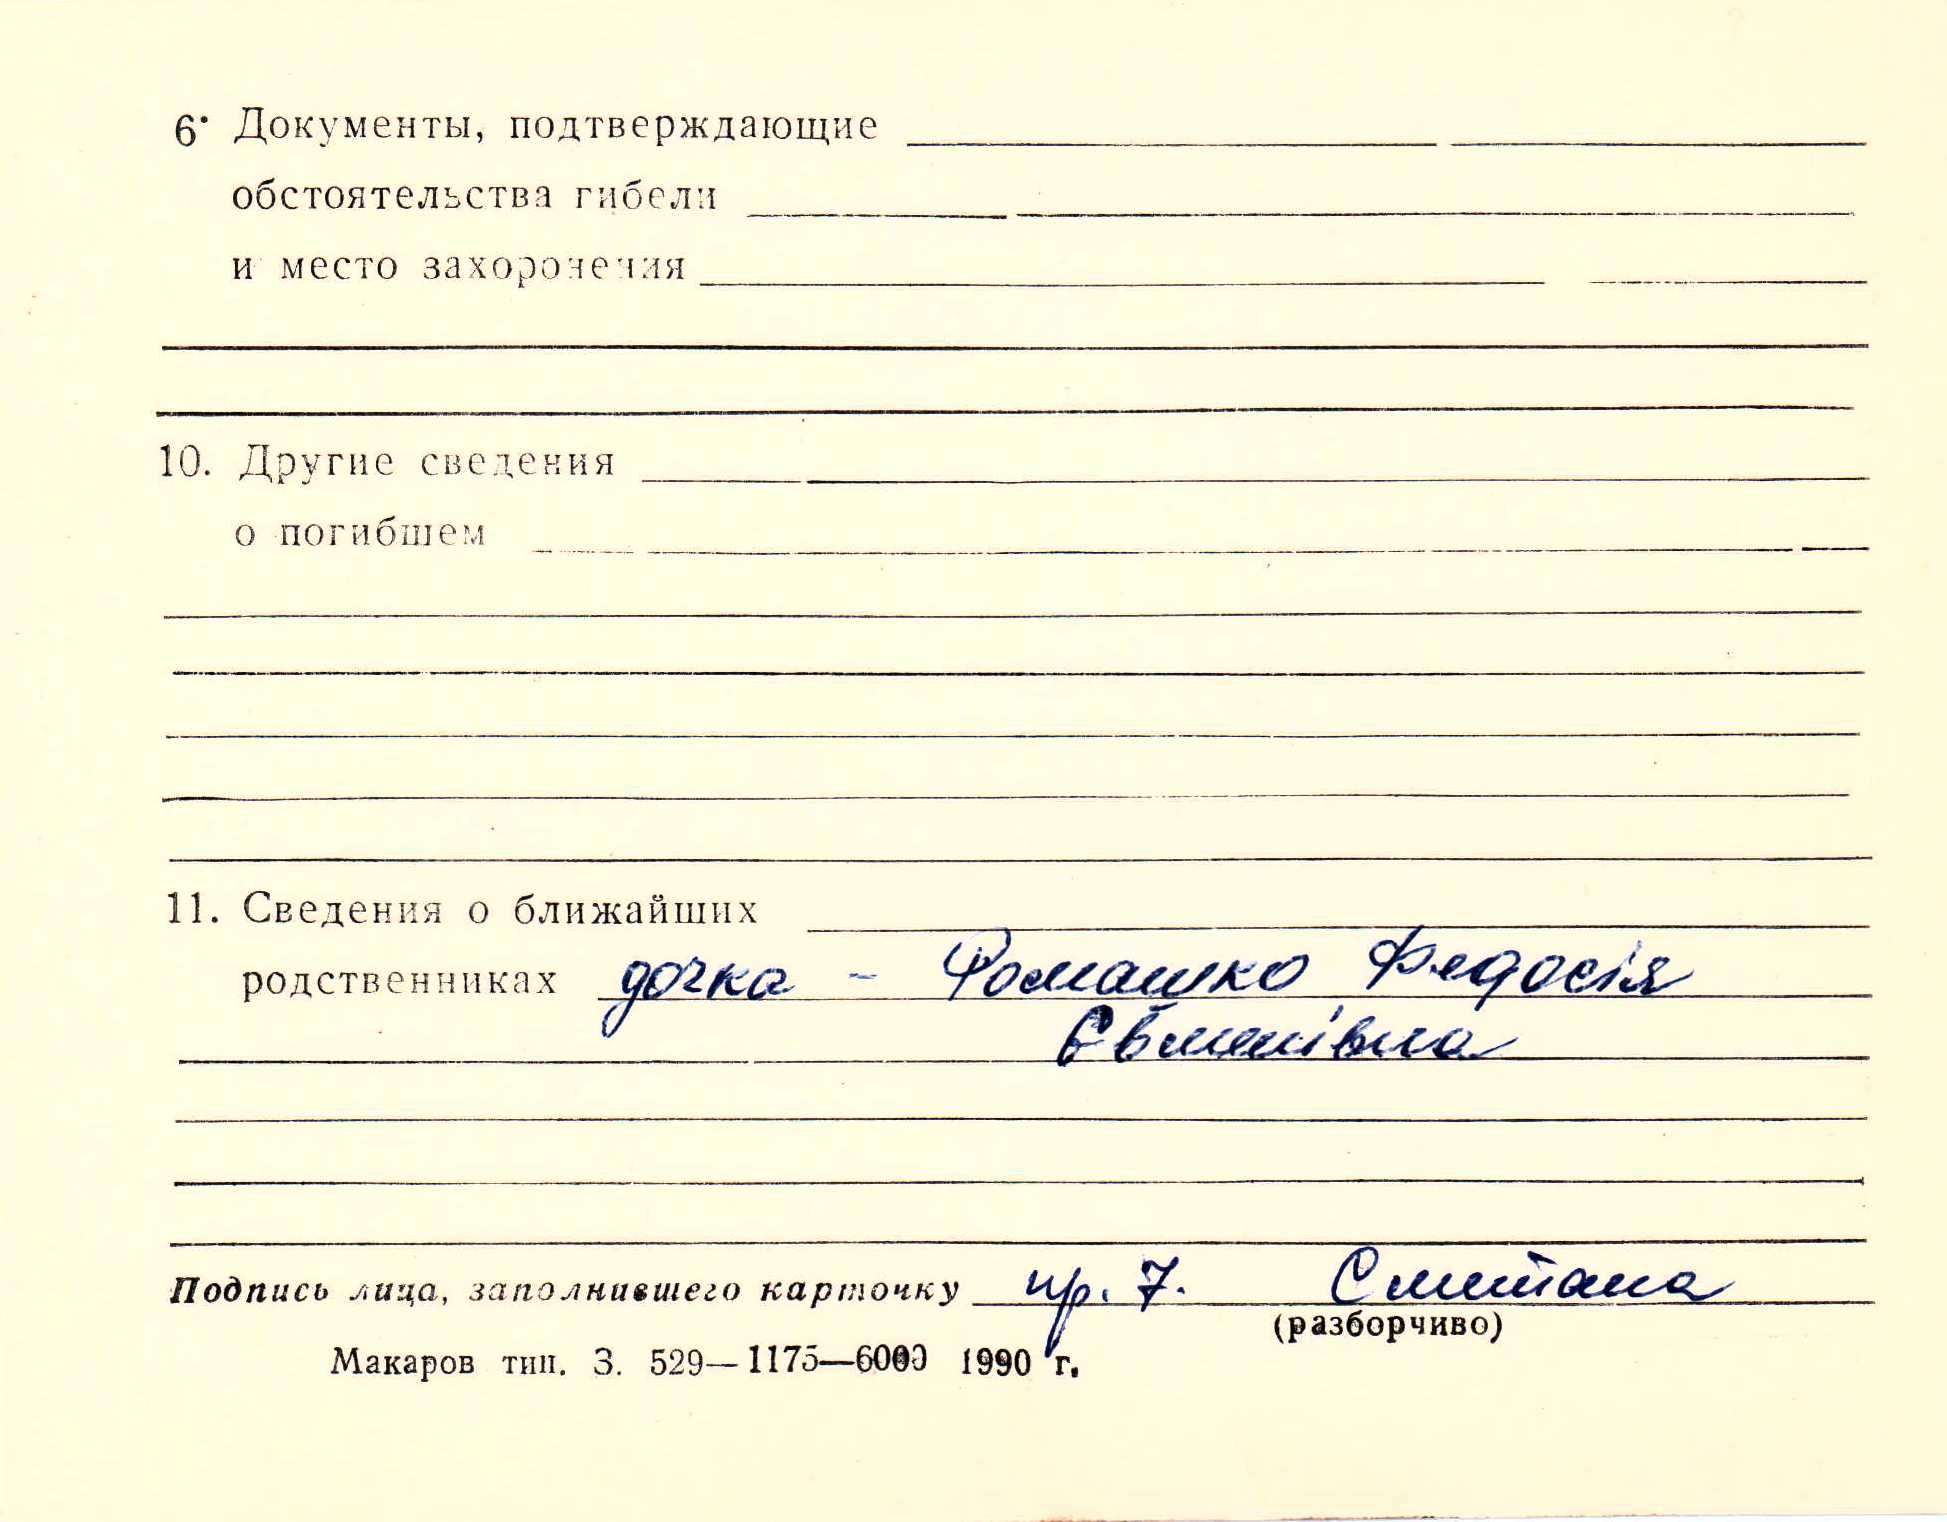 6. Документы, подтверждающие
обстоятельства гибели
и место захоронения
10. Другие сведения
о погибшем
11. Сведения о ближайших
родственниках дочка - Ромашко Федосія
Євменівна
Подпись лица, заполнившего карточку пр. 7. Сметана
(разборчиво)
Макаров тип. З. 529—1175—6000 1990 г.